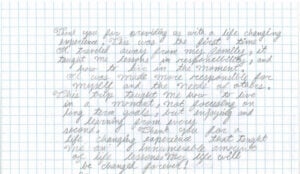 Thank you for providing us with a life changing
experience. This was the first time
I traveled away from my family, it
taught me lessons in responsibility, and
how to live in the moment.
I was made more responsible for
myself and the needs of others.
This trip taught me how to live
in a moment, not focusing on
long term goals, but enjoying and
learning from every
second. Thank you for a
life changing experience that taught
me an innumerable amount
of life lessons. My life will
be changed forever!